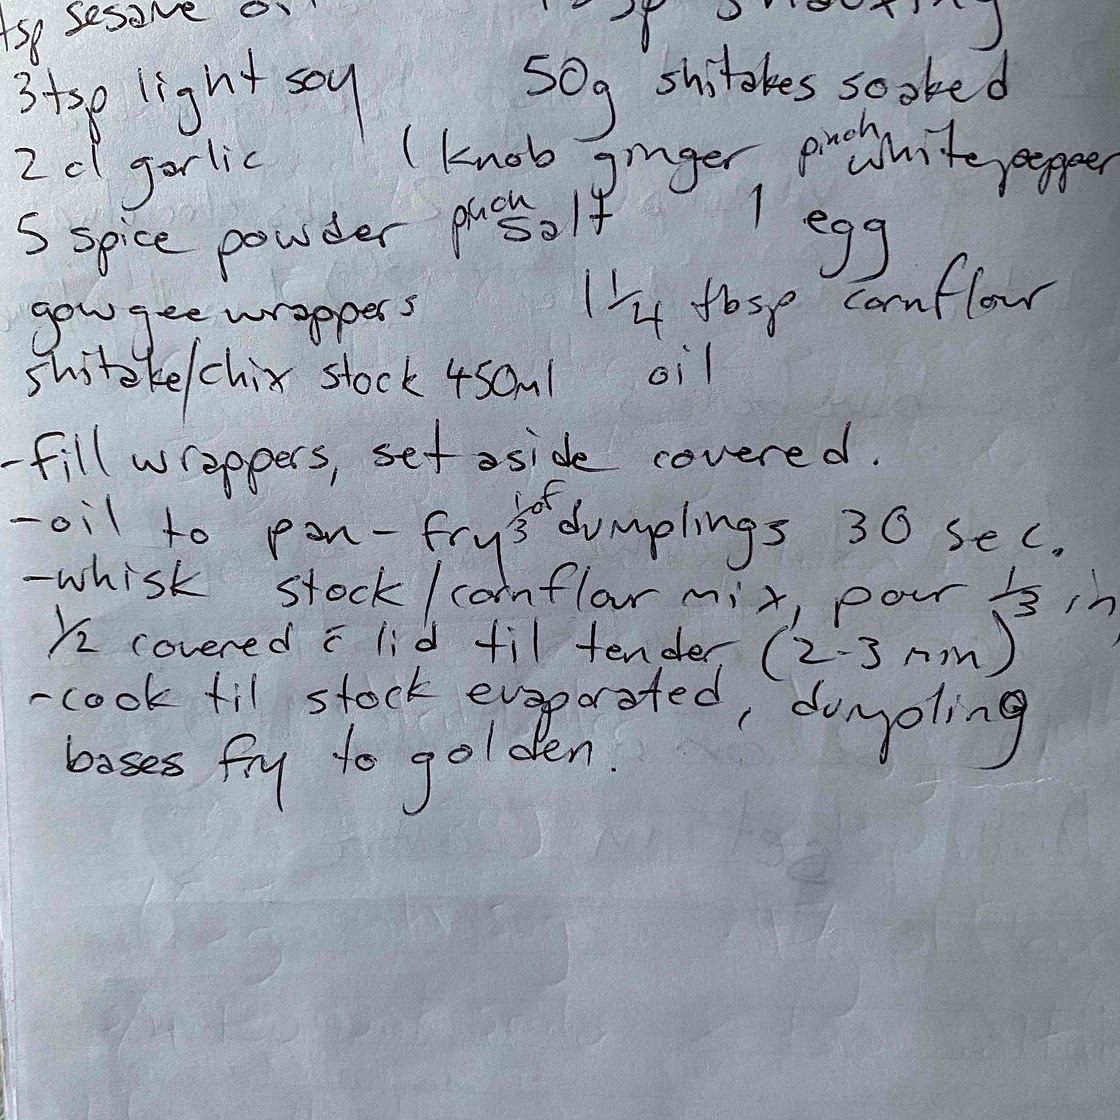 tsp sesame oil
3 tsp light soy 50g shitakes soaked
2 cl garlic 1 knob ginger pinch white pepper
5 spice powder pinch salt 1 egg
gow gee wrappers 1 1/4 tbsp cornflour
shitake/chix stock 450ml oil
- fill wrappers, set aside covered.
- oil to pan - fry 1/3 of dumplings 30 sec.
- whisk stock/cornflour mix, pour 1/3 in,
1/2 covered c̄ lid til tender (2-3 min)
- cook til stock evaporated, dumpling
bases fry to golden.